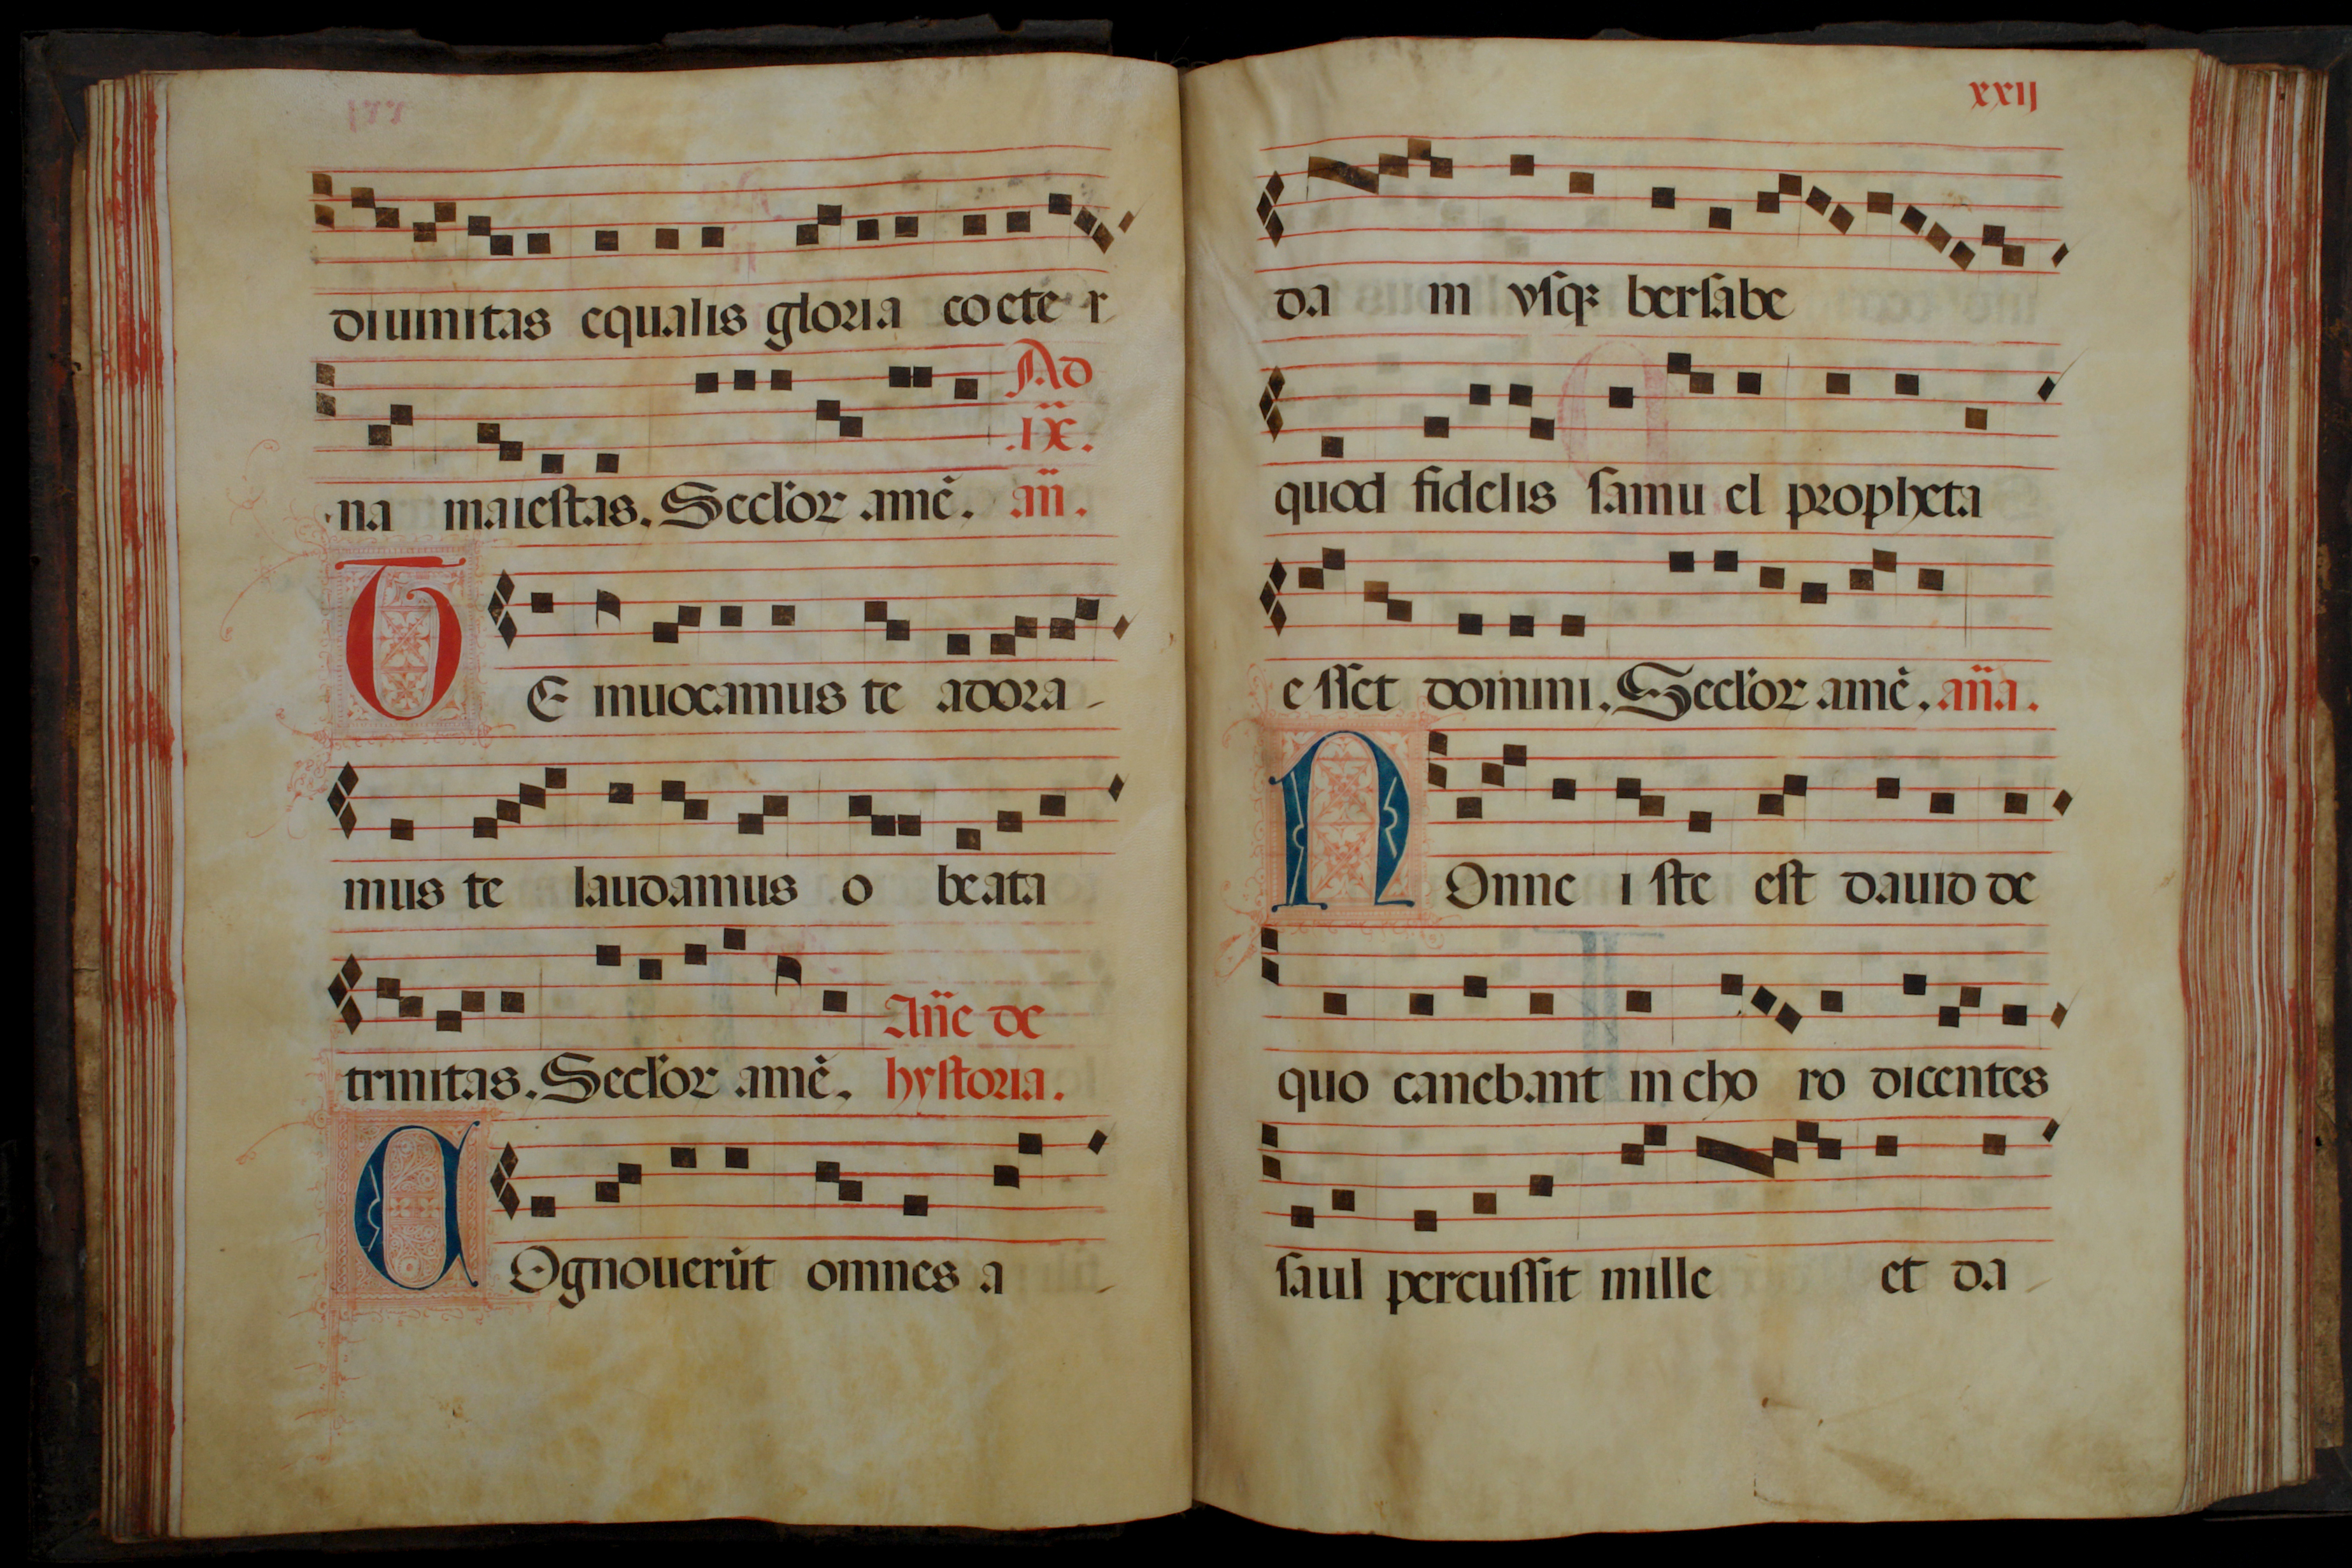 diuinitas equalis gloria coeter
Ad
.IX.
na maiestas. Seclor amē. añ.
TE inuocamus te adora-
mus te laudamus o beata
Añe de
trinitas. Seclor amē. hystoria.
COgnouerūt omnes a
xxij
da in vsqꝫ bersabe
quod fidelis samuel propheta
esset domini. Seclor amē. aña.
NOnne iste est dauid de
quo canebant in choro dicentes
saul percussit mille et da-